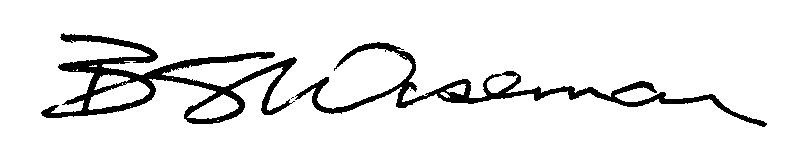 BS Wiseman